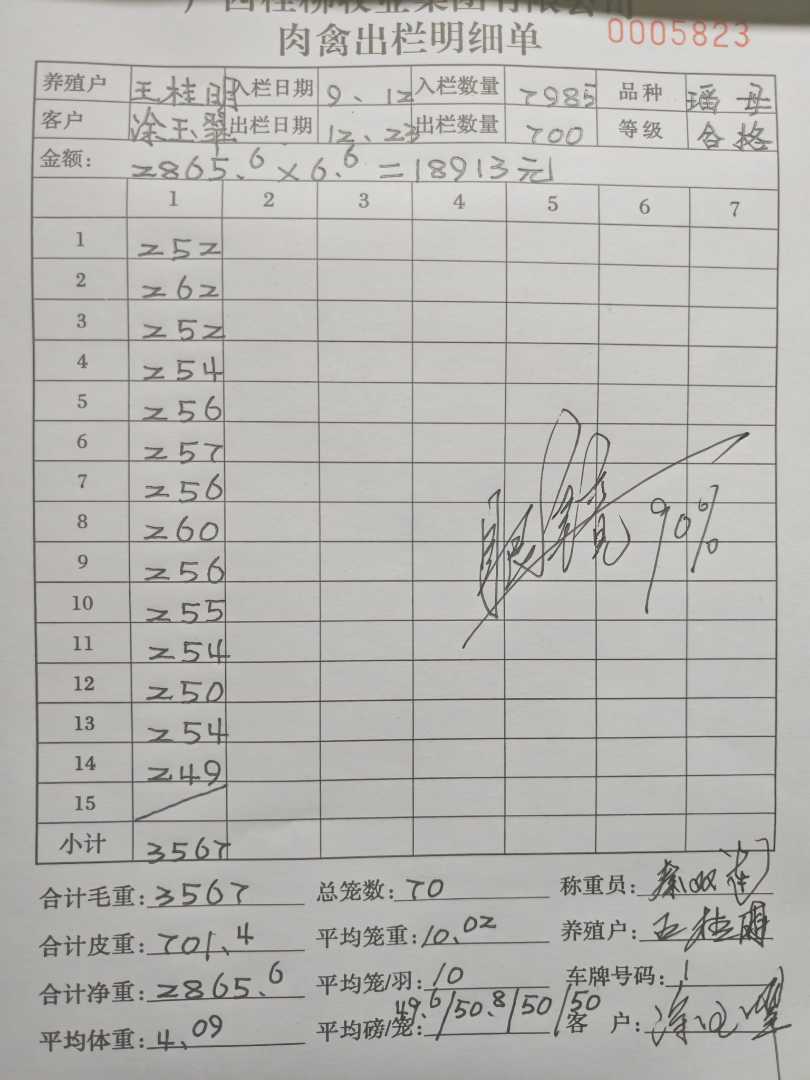 广西桂柳牧业集团有限公司
肉禽出栏明细单 0005823
养殖户 王桂明 入栏日期 9、12 入栏数量 7985 品种 瑶母
客户 涂玉翠 出栏日期 12、23 出栏数量 700 等级 合格
金额: 2865.6 × 6.6 = 18913元
1 2 3 4 5 6 7
1 252
2 262
3 252
4 254
5 256
6 257
7 256
8 260
9 256
10 255
11 254
12 250
13 254
14 249
15
90%
小计 3567
合计毛重: 3567 总笼数: 70 称重员:
合计皮重: 701.4 平均笼重: 10.02 养殖户: 王桂明
合计净重: 2865.6 平均笼/羽: 10 车牌号码: 1
平均体重: 4.09 平均磅/笼: 49.6/50.8/50/50 客 户: